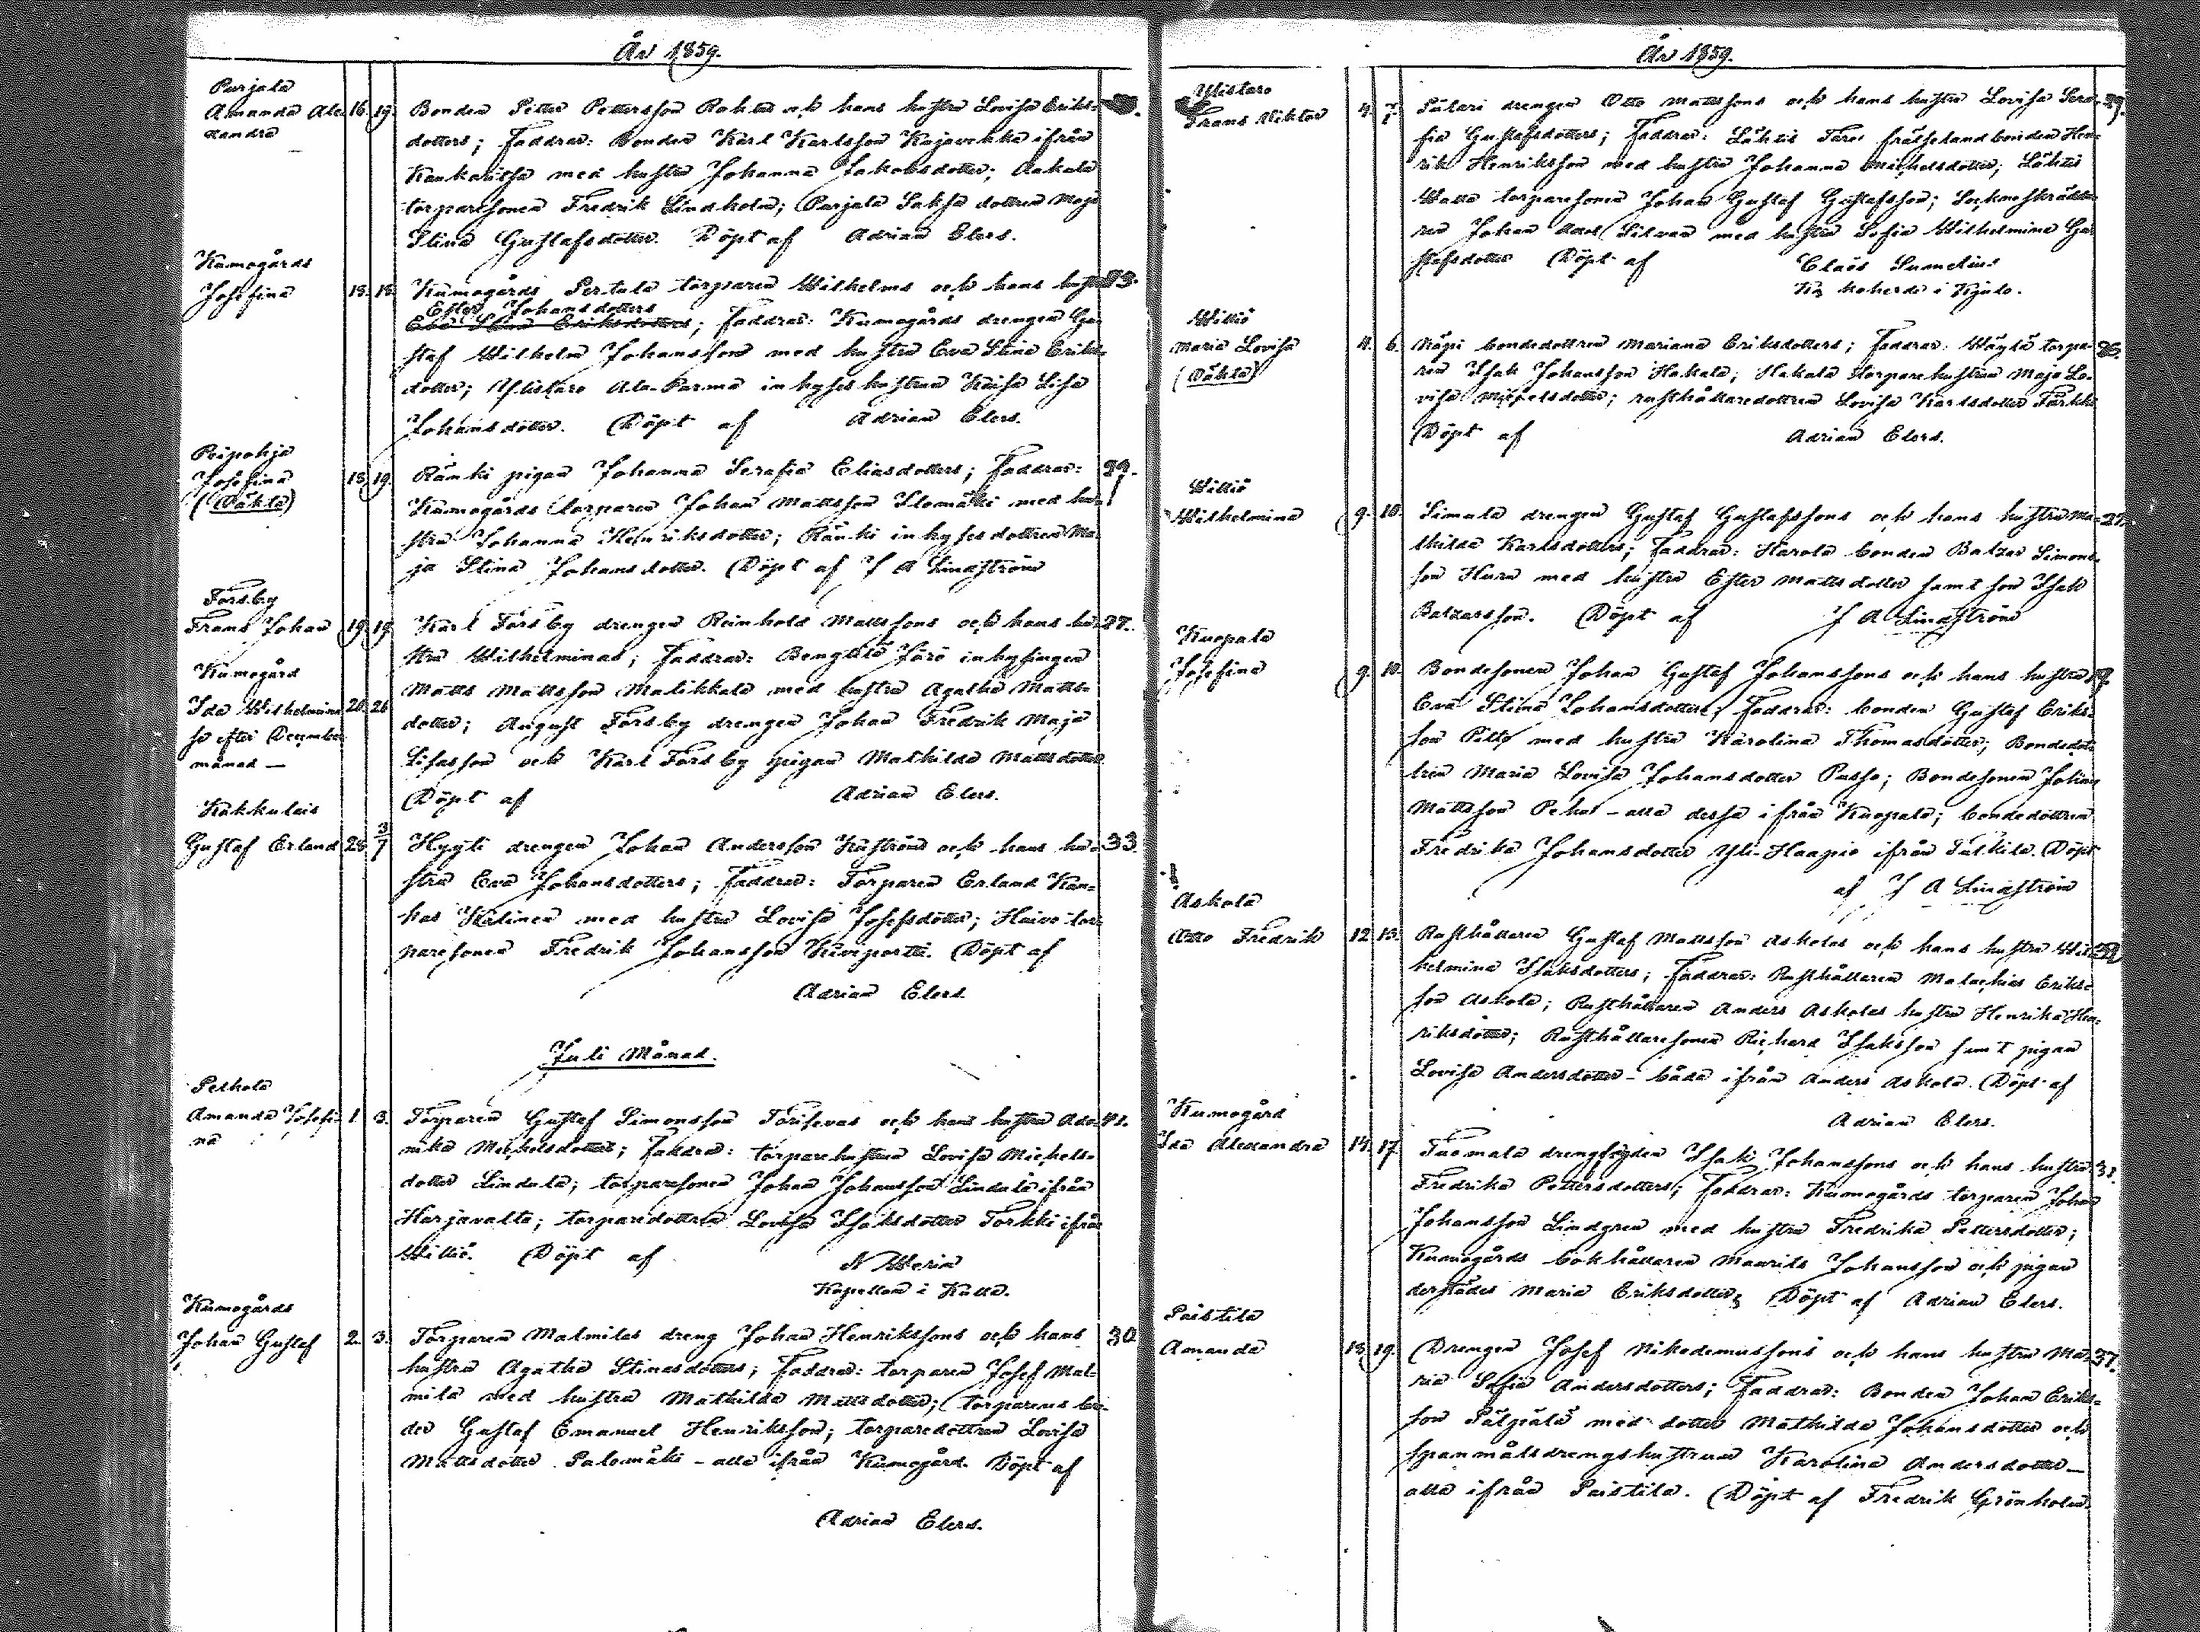 År 1859.
Purjala
Amanda Ale- 16. 19. Bonden Petter Pettersson Rohkas och hans hustru Lovisa Eriks-
xandra dotters; Faddrar: Bonden Karl Karlsson Kajavekka ifrån
med hustru Johanna Jakobsdotter;
torparesonen Fredrik Lindholm; Purjala Saksa dottren Maja
Stina Gustafsdotter. Döpt af Adrian Elers.
Kumogårds
Josefina 18. 18. Kumogårds Pertula torparen Wilhelms och hans hustru
Ester Johansdotters
Eva Stina Eriksdotters; Faddrar: Kumogårds drengen Gu-
staf Wilhelm Johansson med hustru Eva Stina Eriks-
dotter; Ylistaro Ala-Parma inhyses hustrun Kaisa Lisa
Johansdotter. Döpt af Adrian Elers.
Peipohja
Josefina 18. 19. Ränki pigan Johanna Serafia Eliasdotters; Faddrar: 29.
(Oäkta) Kumogårds torparen Johan Mattsson Ilomäki med hu-
stru Johanna Henriksdotter; Ränki inhyses dottren Ma-
ja Stina Johansdotter. Döpt af J A Lindström
Forsby
Frans Johan 19. 19. Karl Forsby drengen Reinholds Mattssons och hans hu- 27.
stru Wilhelminas; Faddrar: Bengtilä Järö inhysingen
Kumogård
Matts Mattsson Malikkala med hustru Agatha Matts-
Ida Wilhelmina 20. 26 dotter; August Forsby drengen Johan Fredrik Maja
se efter December
Lisasson och Karl Forsby pigan Mathilda Mattsdotter
månad —
Döpt af Adrian Elers.
Kakkulais
Gustaf Erland 28. 3/7 Hyyti drengen Johan Andersson Kaströms och hans hu- 33.
stru Eva Johansdotters; Faddrar: Torparen Erland Kan-
kas Kälinen med hustru Lovisa Josefsdotter; Haivo tor-
paresonen Fredrik Johansson Kiviportti. Döpt af
Adrian Elers.
Juli Månad.
Peltola
Amanda Josefi- 1. 3. Torparen Gustaf Simonsson Torisevas och hans hustru Ado- 41.
na nika Michelsdotters; Faddrar: torparehustrun Lovisa Michels-
dotter Lindula; torparesonen Johan Johansson Lindula ifrån
Harjavalta; torparedottren Lovisa Isaksdotter Torkki ifrån
Wittiö. Döpt af N Weria
Kapellan i Kulla.
Kumogårds
Johan Gustaf 2. 3. Torparen Malmilas dreng Johan Henrikssons och hans 30
hustru Agatha Stinasdotters; Faddrar: torparen Josef Mal-
mila med hustru Mathilda Mattsdotter; torparens bro-
der Gustaf Emanuel Henriksson; torparedottren Lovisa
Mattsdotter Salomäki – alla ifrån Kumogård. Döpt af
Adrian Elers.
År 1859.
Ylistaro
Frans Viktor 4. drengen Otto Mattssons och hans hustru Lovisa Sera- 29.
fia Gustafsdotters; Faddrar: frälselandbonden Hen-
rik Henriksson med hustru Johanna Michelsdotter;
torparesonen Johan Gustaf Gustafsson; Sockneskrädda-
ren Johan Silvan med hustru Sofia Wilhelmina Gu-
stafsdotter Döpt af
i Kjulo.
Wittiö
Maria Lovisa 4. 6. Näpi bondedottren Mariana Eriksdotters; Faddrar: torpa-
(Oäkta) ren Isak Johansson Hakala; Hakala torparehustrun Maja Lo-
visa Michelsdotter; rusthållaredottren Lovisa Karlsdotter
Döpt af Adrian Elers.
Wittiö
Wilhelmina 9. 10. Simula drengen Gustaf Gustafssons och hans hustru Ma-
thilda Karlsdotters; Faddrar: Harola bonden Balzar Simons-
son Hura med hustru Ester Mattsdotter samt son Isak
Balzarsson. Döpt af J A Lindström
Kuopala
Josefina 9. 10. Bondesonen Johan Gustaf Johanssons och hans hustru
Eva Stina Johansdotters; Faddrar: bonden Gustaf Eriks-
son Pitko med hustru Karolina Thomasdotter; Bondedot-
tren Maria Lovisa Johansdotter Passo; Bondesonen Johan
Mattsson – alla dessa ifrån Kuopala; bondedottren
Fredrika Johansdotter Yli-Haapio ifrån Döpt
af J A Lindström
Askola
Otto Fredrik 12 13. Rusthållaren Gustaf Mattsson Askolas och hans hustru Wil-
helmina Isaksdotters; Faddrar: Rusthållaren Malachias Eriks-
son Askola; Rusthållaren Anders Askolas hustru Henrika Hen-
riksdotter; Rusthållaresonen Richard Isaksson samt pigan
Lovisa Andersdotter – båda ifrån Anders Askola. Döpt af
Adrian Elers.
Kumogård
Ida Alexandra 14. 17. Tuomala drengfogden Isak Johanssons och hans hustru
Fredrika Pettersdotters; Faddrar: Kumogårds torparen Johan
Johansson Lindgren med hustru Fredrika Pettersdotter;
Kumogårds bokhållaren Maurits Johansson och pigan
derstädes Maria Eriksdotter. Döpt af Adrian Elers.
Paistila
Amanda 18. 19. Drengen Josef Nikodemussons och hans hustru Ma- 37.
ria Sofia Andersdotters; Faddrar: Bonden Johan Eriks-
son Pälpälä med dotter Mathilda Johansdotter och
spanmålsdrengshustrun Karolina Andersdotter –
alla ifrån Paistila. Döpt af Fredrik Grönholm.